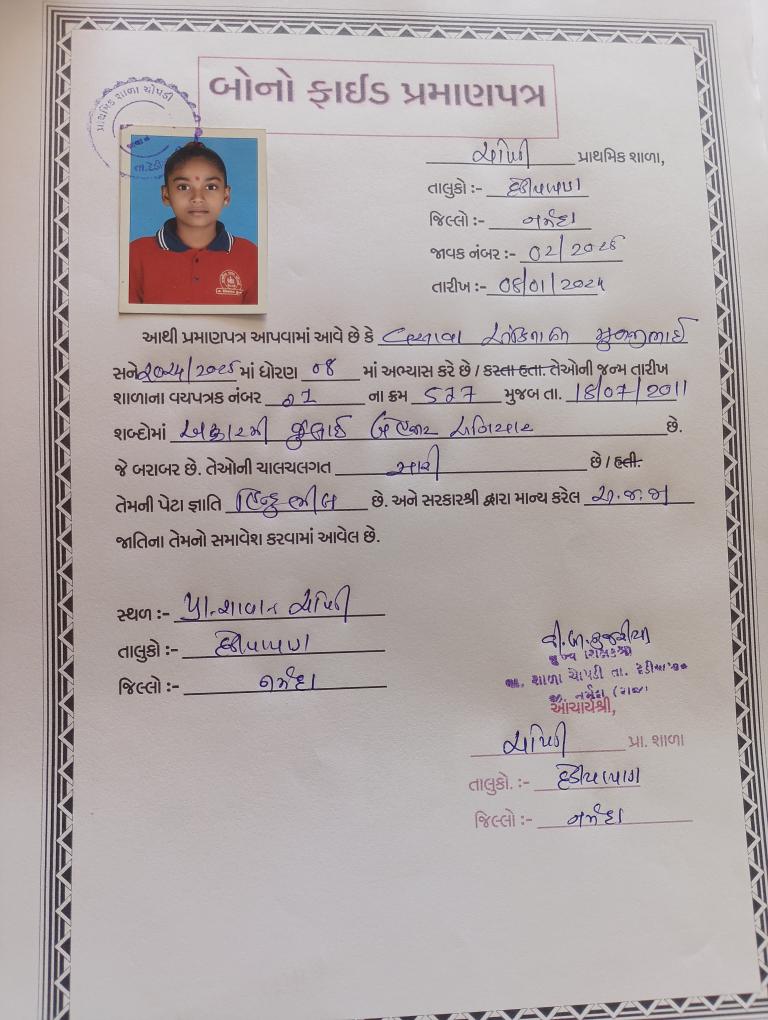 બોનો ફાઈડ પ્રમાણપત્ર
પ્રાથમિક શાળા ચોપડી
ચોપડી પ્રાથમિક શાળા,
તાલુકો :- દેડીયાપાડા
જિલ્લો :- નર્મદા
જાવક નંબર :- 02/
તારીખ :- 
આથી પ્રમાણપત્ર આપવામાં આવે છે કે વસાવા
સને માં ધોરણ ૦૪ માં અભ્યાસ કરે છે / કરતા હતા. તેઓની જન્મ તારીખ
શાળાના વયપત્રક નંબર ના ક્રમ 577 મુજબ તા. 18/07/2011
શબ્દોમાં અઢારમી જુલાઈ બે હજાર અગિયાર છે.
જે બરાબર છે. તેઓની ચાલચલગત સારી છે / હતી.
તેમની પેટા જ્ઞાતિ હિન્દુ ભીલ છે. અને સરકારશ્રી દ્વારા માન્ય કરેલ અ.જ.જા
જાતિના તેમનો સમાવેશ કરવામાં આવેલ છે.
સ્થળ :- પ્રા. શાળા ચોપડી
તાલુકો :- દેડીયાપાડા
જિલ્લો :- નર્મદા
મુખ્ય શિક્ષકશ્રી
પ્રા. શાળા ચોપડી તા. દેડીયાપાડા
જી. નર્મદા
આચાર્યશ્રી,
ચોપડી પ્રા. શાળા
તાલુકો. :- દેડીયાપાડા
જિલ્લો :- નર્મદા